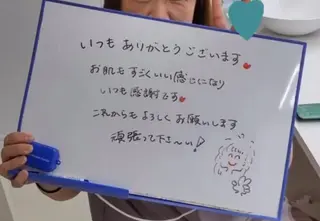 いつも ありがとうございます♥
お肌もすごくいい感じになり
いつも感謝です♥
これからも よろしくお願いします
頑張って下さ〜い!